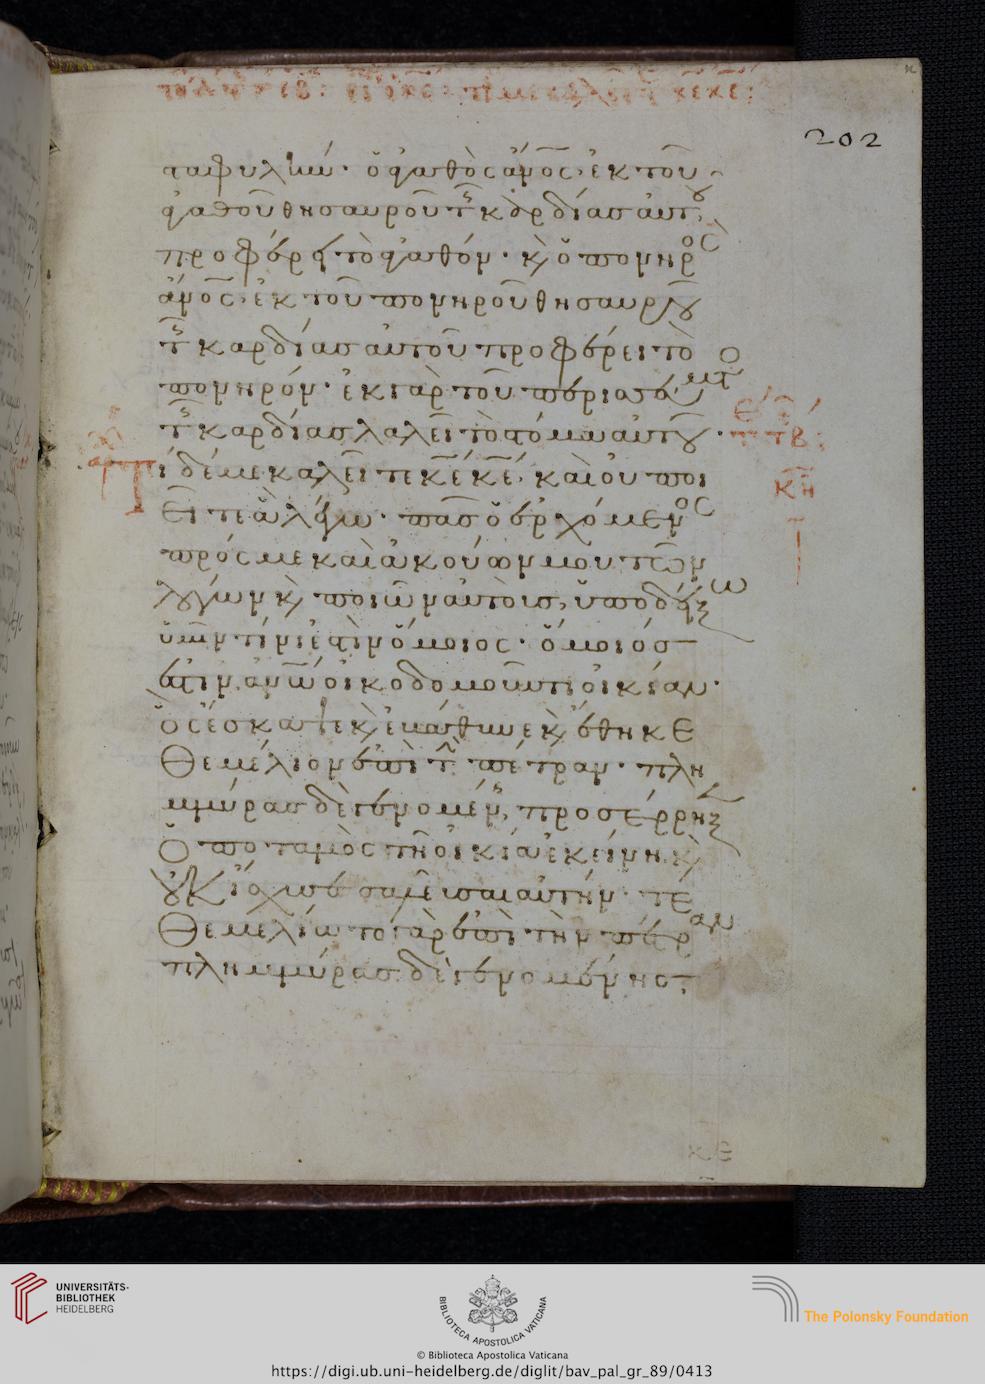 202
ταφυλήν· ὁ ἀγαθὸς ἄνος· ἐκ τοῦ
ἀγαθοῦ θησαυροῦ τῆς καρδίας αὐτοῦ
προφέρει τὸ ἀγαθόν· κ̀ ὁ πονηρὸς
ἄνος· ἐκ τοῦ πονηροῦ θησαυροῦ
τῆς καρδίας αὐτοῦ προφέρει τὸ
πονηρόν· ἐκ γὰρ τοῦ περισσεύματος
τῆς καρδίας λαλεῖ τὸ στόμα αὐτοῦ·
Τί δέ με καλεῖτε κε κε, καὶ οὐ ποι
εῖτε ἃ λέγω· πᾶς ὁ ἐρχόμενος
πρός με καὶ ἀκούων μου τῶν
λόγων κ̀ ποιῶν αὐτοὺς, ὑποδείξω
ὑμῖν τίνι ἐστὶν ὅμοιος· ὅμοιός
ἐστιν ἀνω οἰκοδομοῦντι οἰκίαν·
ὃς ἔσκαψε κ̀ ἐβάθυνε κ̀ ἔθηκε
θεμέλιον ἐπὶ τὴν πέτραν· πλη
μμύρας δὲ γενομένης, προσέρρηξεν
ὁ ποταμὸς τῇ οἰκίᾳ ἐκείνη κ̀
οὐκ ἴσχυσε σαλεῦσαι αὐτήν· τε
θεμελίωτο γὰρ ἐπὶ τὴν πέτραν
πλημμύρας δὲ γενομένης
κε
κη
UNIVERSITÄTS-
BIBLIOTHEK
HEIDELBERG
BIBLIOTECA APOSTOLICA VATICANA
© Biblioteca Apostolica Vaticana
The Polonsky Foundation
https://digi.ub.uni-heidelberg.de/diglit/bav_pal_gr_89/0413